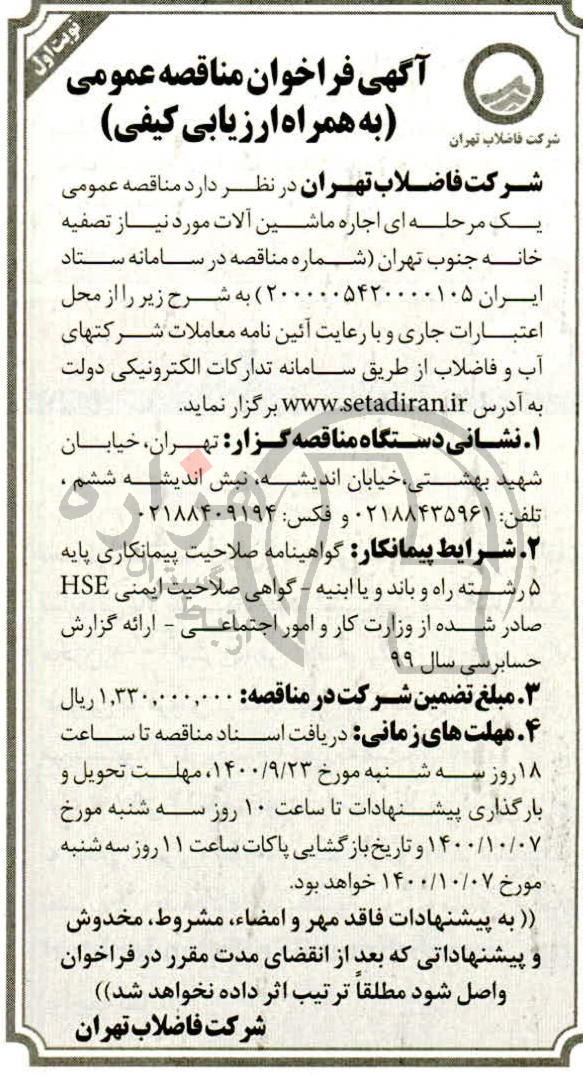 نوبت اول
شرکت فاضلاب تهران
آگهی فراخوان مناقصه عمومی
(به همراه ارزیابی کیفی)
شرکت فاضلاب تهران در نظر دارد مناقصه عمومی
یک مرحله ای اجاره ماشین آلات مورد نیاز تصفیه
خانه جنوب تهران (شماره مناقصه در سامانه ستاد
ایران ۲۰۰۰۰۰۵۴۲۰۰۰۰۱۰۵) به شرح زیر را از محل
اعتبارات جاری و با رعایت آئین نامه معاملات شرکتهای
آب و فاضلاب از طریق سامانه تدارکات الکترونیکی دولت
به آدرس www.setadiran.ir برگزار نماید.
۱. نشانی دستگاه مناقصه گزار: تهران، خیابان
شهید بهشتی، خیابان اندیشه، نبش اندیشه ششم ،
تلفن: ۰۲۱۸۸۴۳۵۹۶۱ و فکس: ۰۲۱۸۸۴۰۹۱۹۴
۲. شرایط پیمانکار: گواهینامه صلاحیت پیمانکاری پایه
۵ رشته راه و باند و یا ابنیه - گواهی صلاحیت ایمنی HSE
صادر شده از وزارت کار و امور اجتماعی - ارائه گزارش
حسابرسی سال ۹۹
۳. مبلغ تضمین شرکت در مناقصه: ۱,۳۳۰,۰۰۰,۰۰۰ ریال
۴. مهلت های زمانی: دریافت اسناد مناقصه تا ساعت
۱۸ روز سه شنبه مورخ ۱۴۰۰/۹/۲۳، مهلت تحویل و
بارگذاری پیشنهادات تا ساعت ۱۰ روز سه شنبه مورخ
۱۴۰۰/۱۰/۰۷ و تاریخ بازگشایی پاکات ساعت ۱۱ روز سه شنبه
مورخ ۱۴۰۰/۱۰/۰۷ خواهد بود.
(( به پیشنهادات فاقد مهر و امضاء، مشروط، مخدوش
و پیشنهاداتی که بعد از انقضای مدت مقرر در فراخوان
واصل شود مطلقاً ترتیب اثر داده نخواهد شد))
شرکت فاضلاب تهران
هزاره